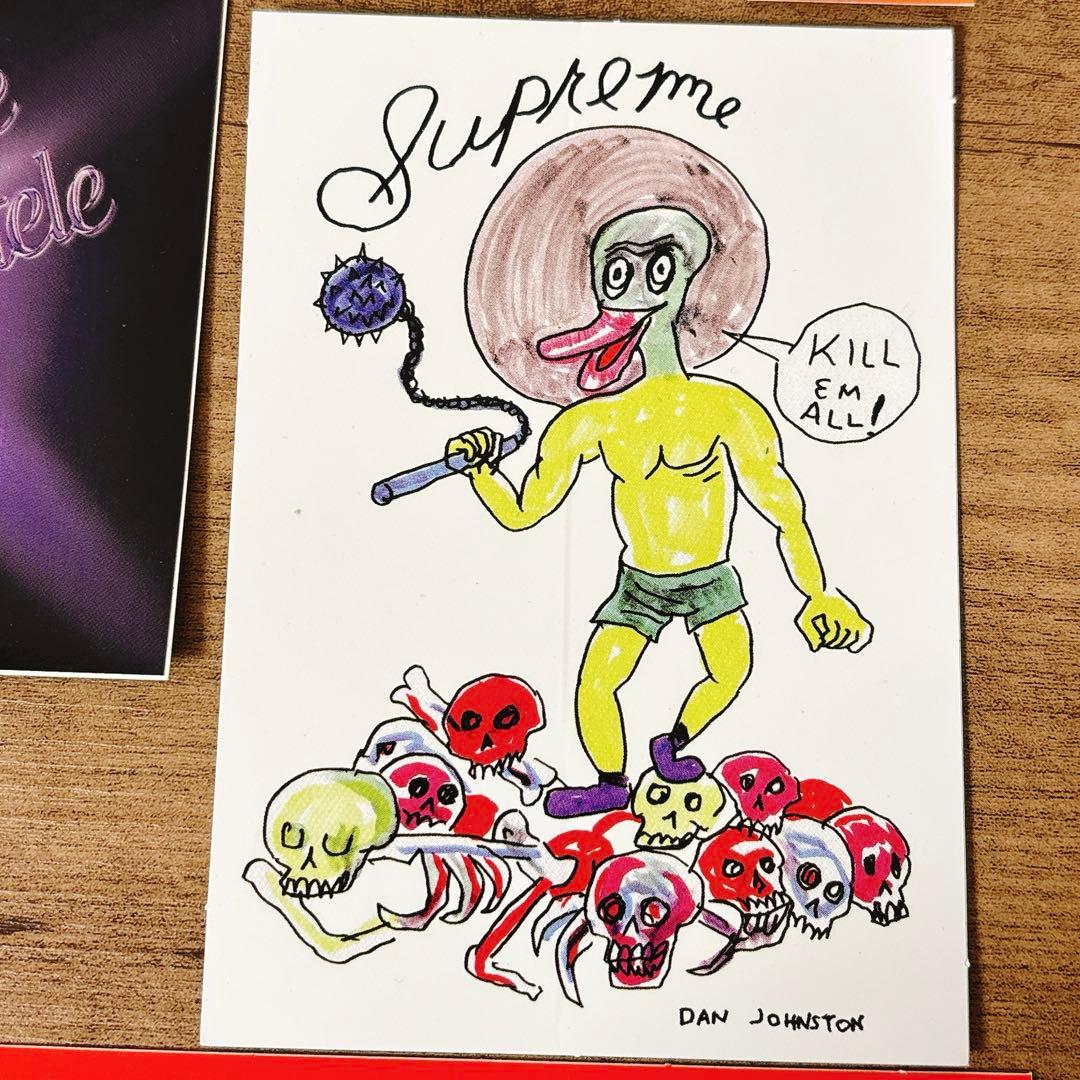 Supreme
KILL
EM
ALL!
DAN JOHNSTON